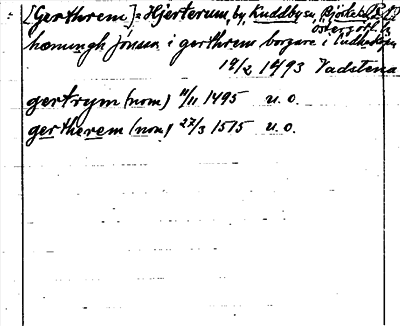 [Gerthrem] = Hjerterum, by, Kuddbysn, Björkekinds hd
Östergötl.
hæmingh jónsson i gerthrem borgare i Sudherköping
19/2 1493 Vadstena
gertrym (nom) 11/11 1495 u. o.
gertherem (nom) 27/3 1515 u. o.